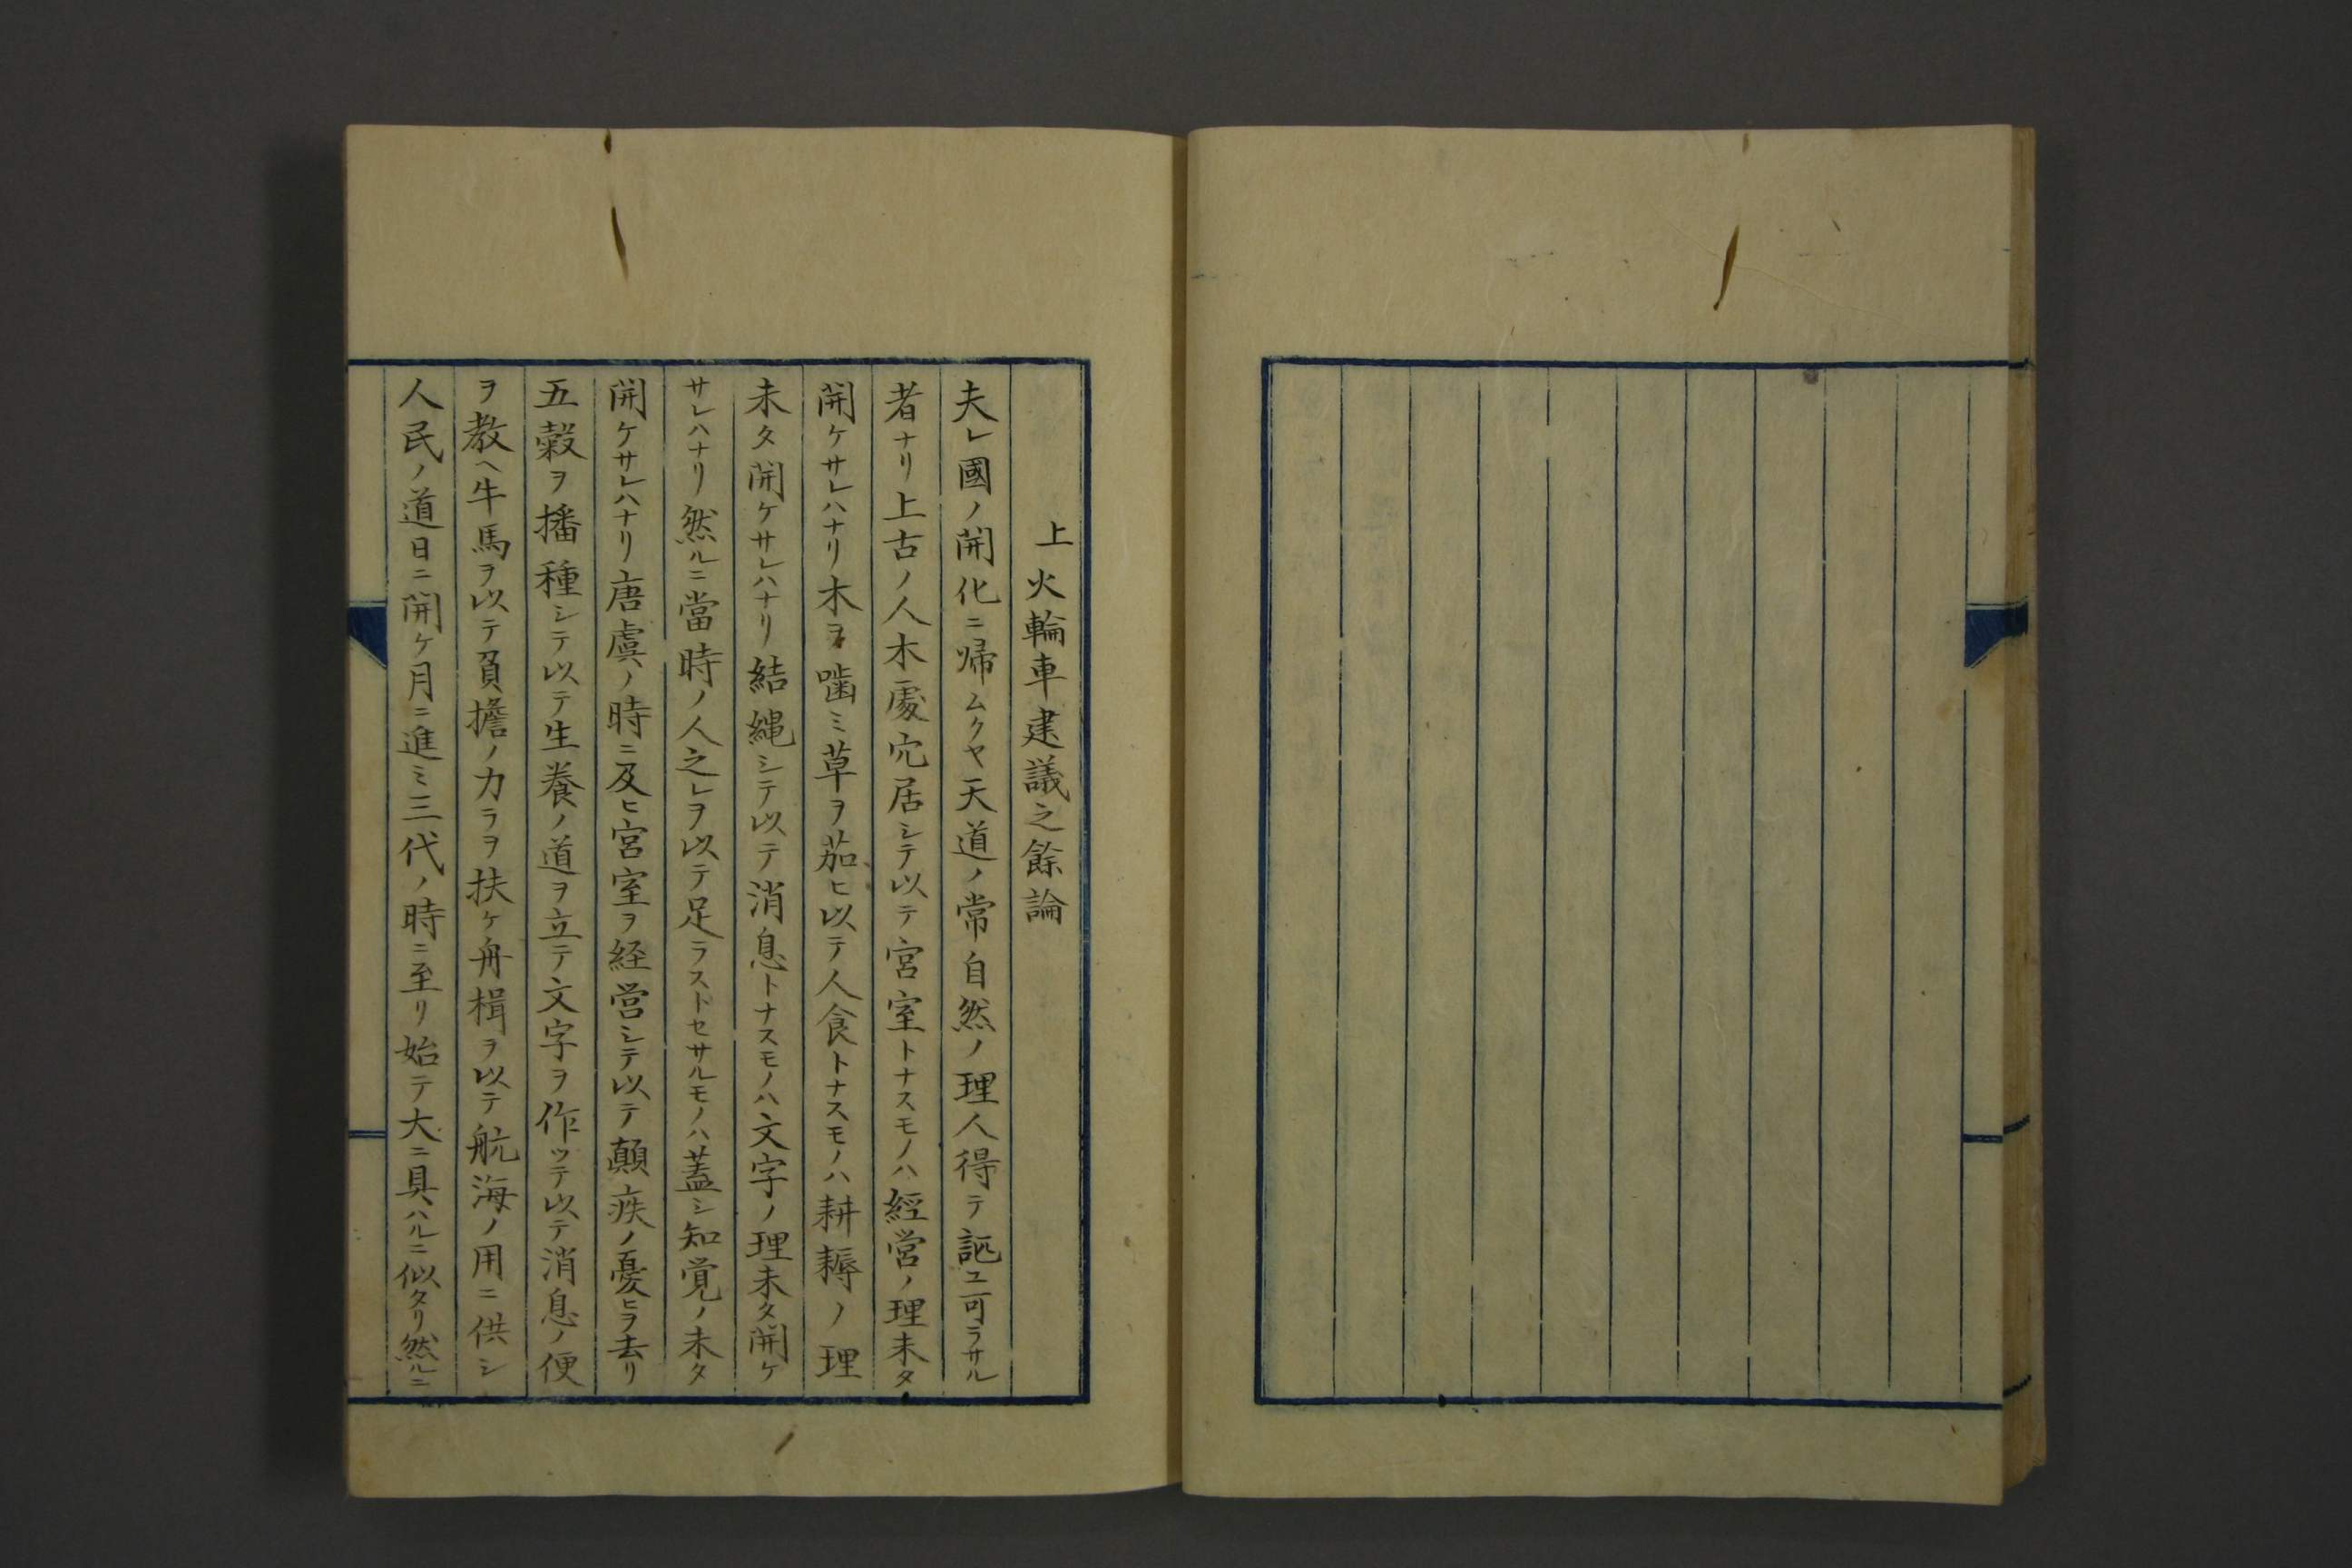 上火輪車建議之餘論
夫レ國ノ開化ニ帰ムクヤ天道ノ常自然ノ理人得テ誣ユ可ラサル
者ナリ上古ノ人木處穴居シテ以テ宮室トナスモノハ經営ノ理未タ
開ケサレハナリ木ヲ噛ミ草ヲ茹ヒ以テ人食トナスモノハ耕耨ノ理
未タ開ケサレハナリ結縄シテ以テ消息トナスモノハ文字ノ理未タ開ケ
サレハナリ然ルニ當時ノ人之レヲ以テ足ラストセサルモノハ蓋シ知覚ノ未タ
開ケサレハナリ唐虞ノ時ニ及ヒ宮室ヲ経営シテ以テ顛疾ノ憂ヒヲ去リ
五穀ヲ播種シテ以テ生養ノ道ヲ立テ文字ヲ作ッテ以テ消息ノ便
ヲ教ヘ牛馬ヲ以テ負擔ノ力ラヲ扶ケ舟楫ヲ以テ航海ノ用ニ供シ
人民ノ道日ニ開ケ月ニ進ミ三代ノ時ニ至リ始テ大ニ具ハルニ似タリ然ルニ